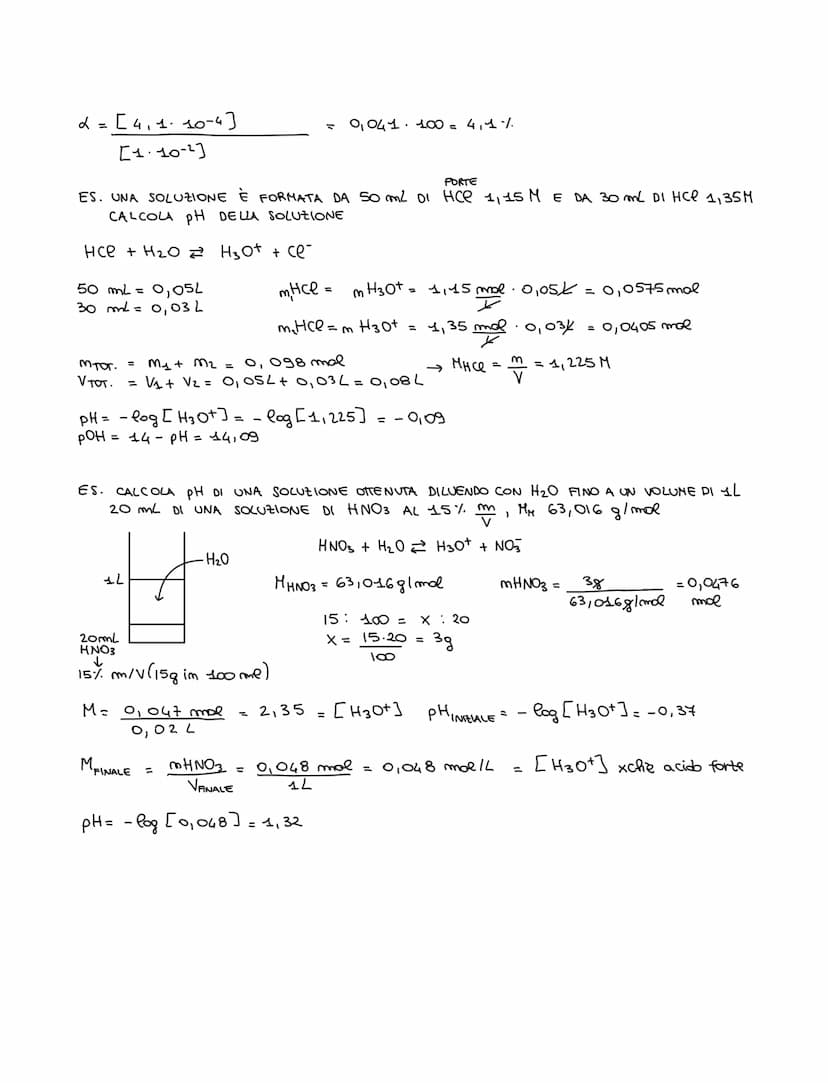 α = [4,1 · 10⁻⁴] / [1 · 10⁻²] = 0,041 · 100 = 4,1 %
FORTE
ES. UNA SOLUZIONE È FORMATA DA 50 mL DI HCl 1,15 M E DA 30 mL DI HCl 1,35M
CALCOLA pH DELLA SOLUZIONE
HCl + H₂O ⇄ H₃O⁺ + Cl⁻
50 mL = 0,05L n₁HCl = n H₃O⁺ = 1,15 mol/L · 0,05L = 0,0575 mol
30 mL = 0,03 L
n₂HCl = n H₃O⁺ = 1,35 mol/L · 0,03L = 0,0405 mol
nTOT. = n₁ + n₂ = 0,098 mol → MHCl = n/V = 1,225 M
VTOT. = V₁ + V₂ = 0,05L + 0,03L = 0,08L
pH = -log [H₃O⁺] = - log [1,225] = - 0,09
pOH = 14 - pH = 14,09
ES. CALCOLA pH DI UNA SOLUZIONE OTTENUTA DILUENDO CON H₂O FINO A UN VOLUME DI 1L
20 mL DI UNA SOLUZIONE DI HNO₃ AL 15% m/V , MM 63,016 g/mol
HNO₃ + H₂O ⇄ H₃O⁺ + NO₃⁻
H₂O
1L
MHNO₃ = 63,016 g/mol nHNO₃ = 3g / 63,016 g/mol = 0,0476 mol
15 : 100 = x : 20
x = 15·20 / 100 = 3g
20 mL
HNO₃
↓
15% m/V (15g in 100 ml)
M = 0,047 mol / 0,02 L = 2,35 = [H₃O⁺] pH INIZIALE = - log [H₃O⁺] = -0,37
M FINALE = nHNO₃ / V FINALE = 0,048 mol / 1L = 0,048 mol/L = [H₃O⁺] xchè acido forte
pH = - log [0,048] = 1,32